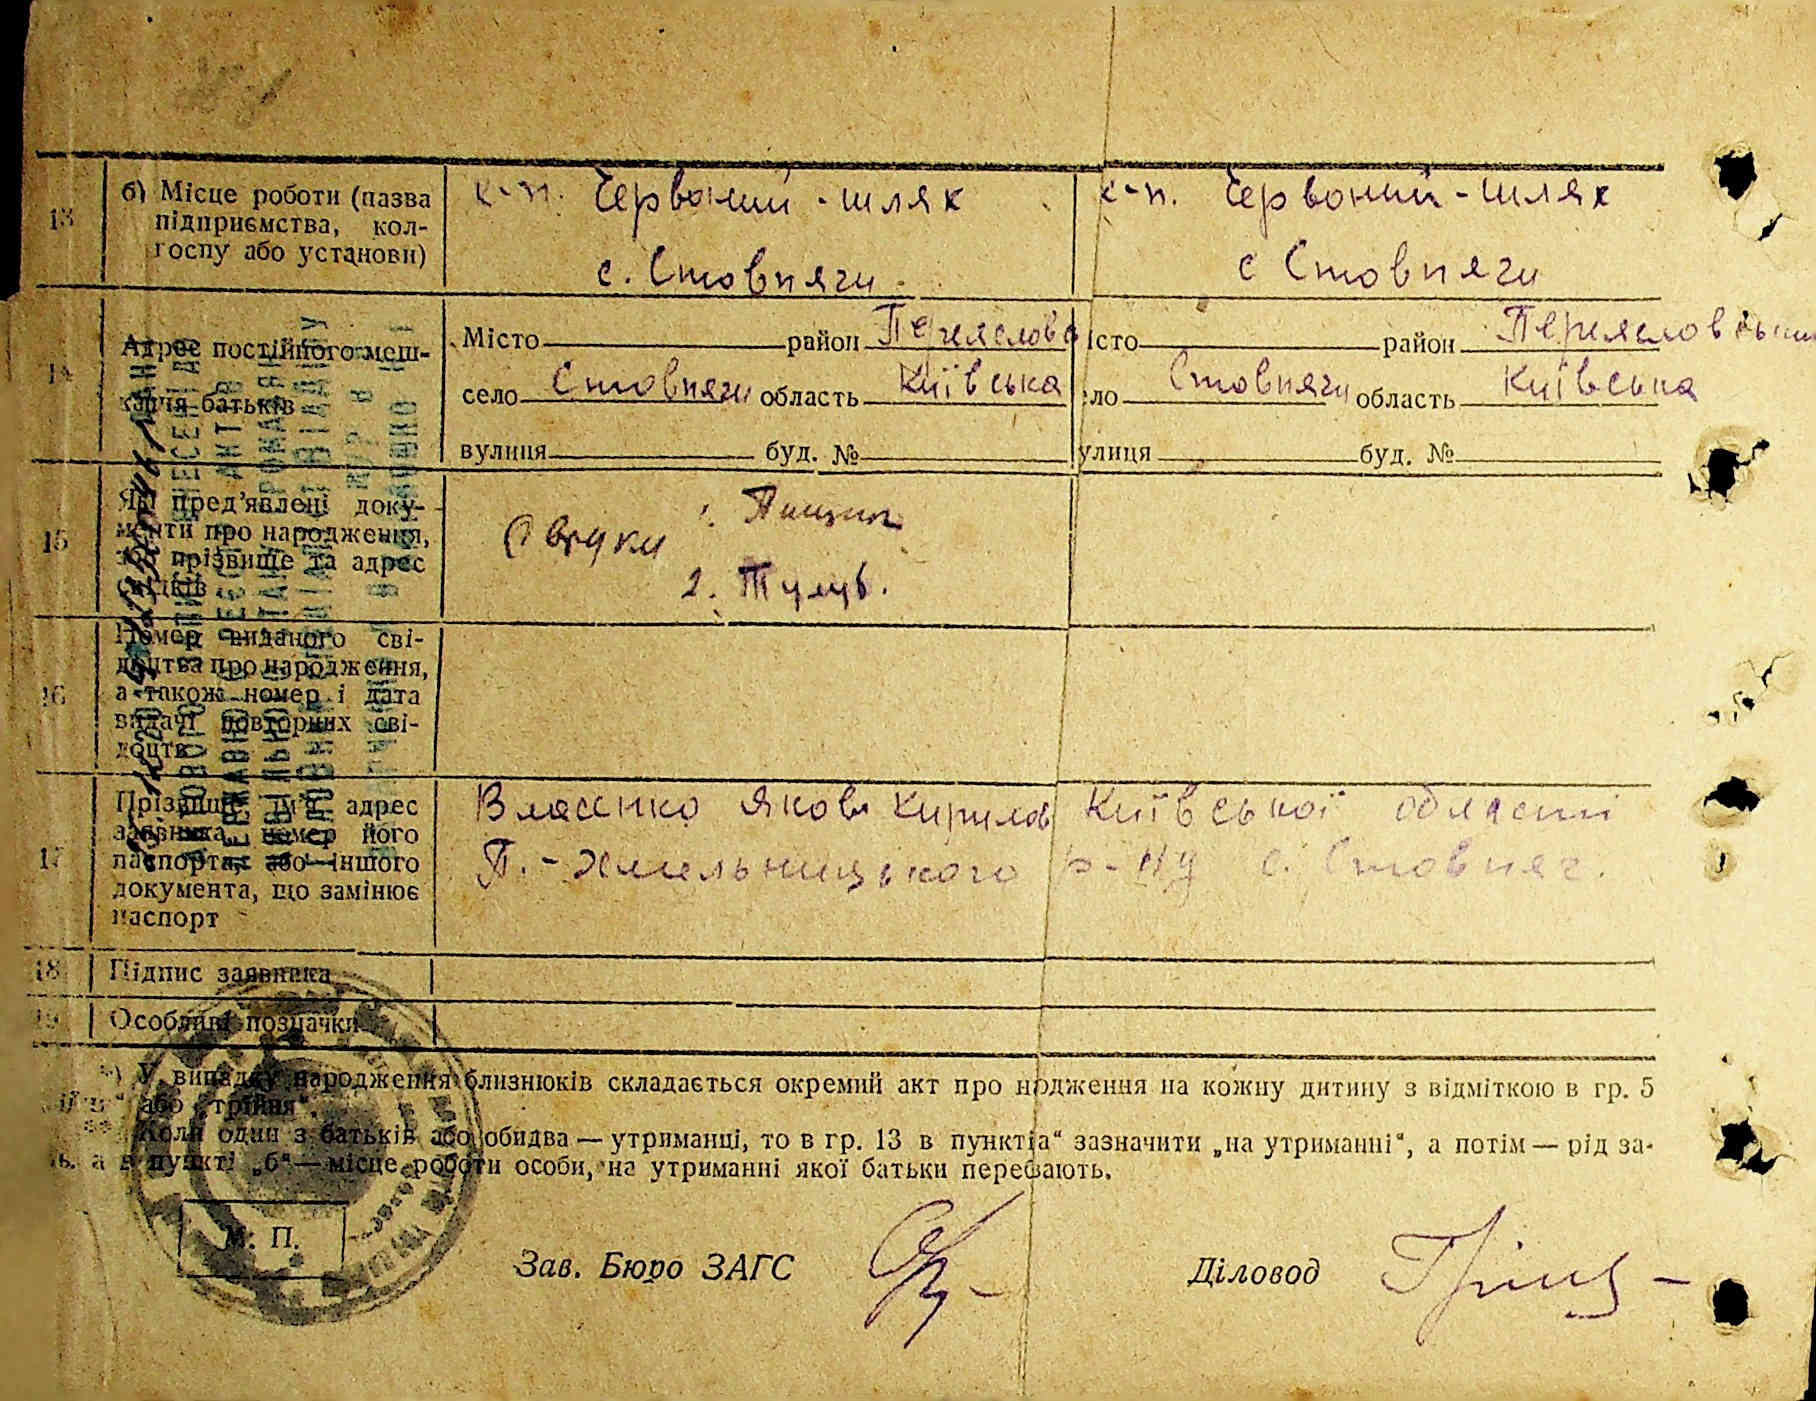 13
б) Місце роботи (назва
підприємства, кол-
госпу або установи)
к-п. Червоний-шлях
с. Стовпяги
к-п. Червоний-шлях
с Стовпяги
14
Адрес постійного меш-
кання батьків
Місто район
село Стовпяги область Київська
вулиця буд. №
істо район
ло Стовпяги область Київська
улиця буд. №
15
Які пред'явлені доку-
менти про народження,
прізвище та адрес
свідків
1.
2.
16
Номер виданого сві-
доцтва про народження,
а також номер і дата
видачі повторних сві-
доцтв
17
Прізвище, ім'я, адрес
заявника, номер його
паспорта, або іншого
документа, що замінює
паспорт
Власенко Яков Кирилов Київської області
П.-Хмельницького р-ну с. Стовпяг.
18 Підпис заявника
19 Особливі позначки
*) У випадку народження близнюків складається окремий акт про нодження на кожну дитину з відміткою в гр. 5
або „трійня“.
** Коли один з батьків або обидва — утриманці, то в гр. 13 в пункті а“ зазначити „на утриманні“, а потім — рід за-
а в пункті „б“ — місце роботи особи, на утриманні якої батьки перебвають.
М. П.
Зав. Бюро ЗАГС
Діловод